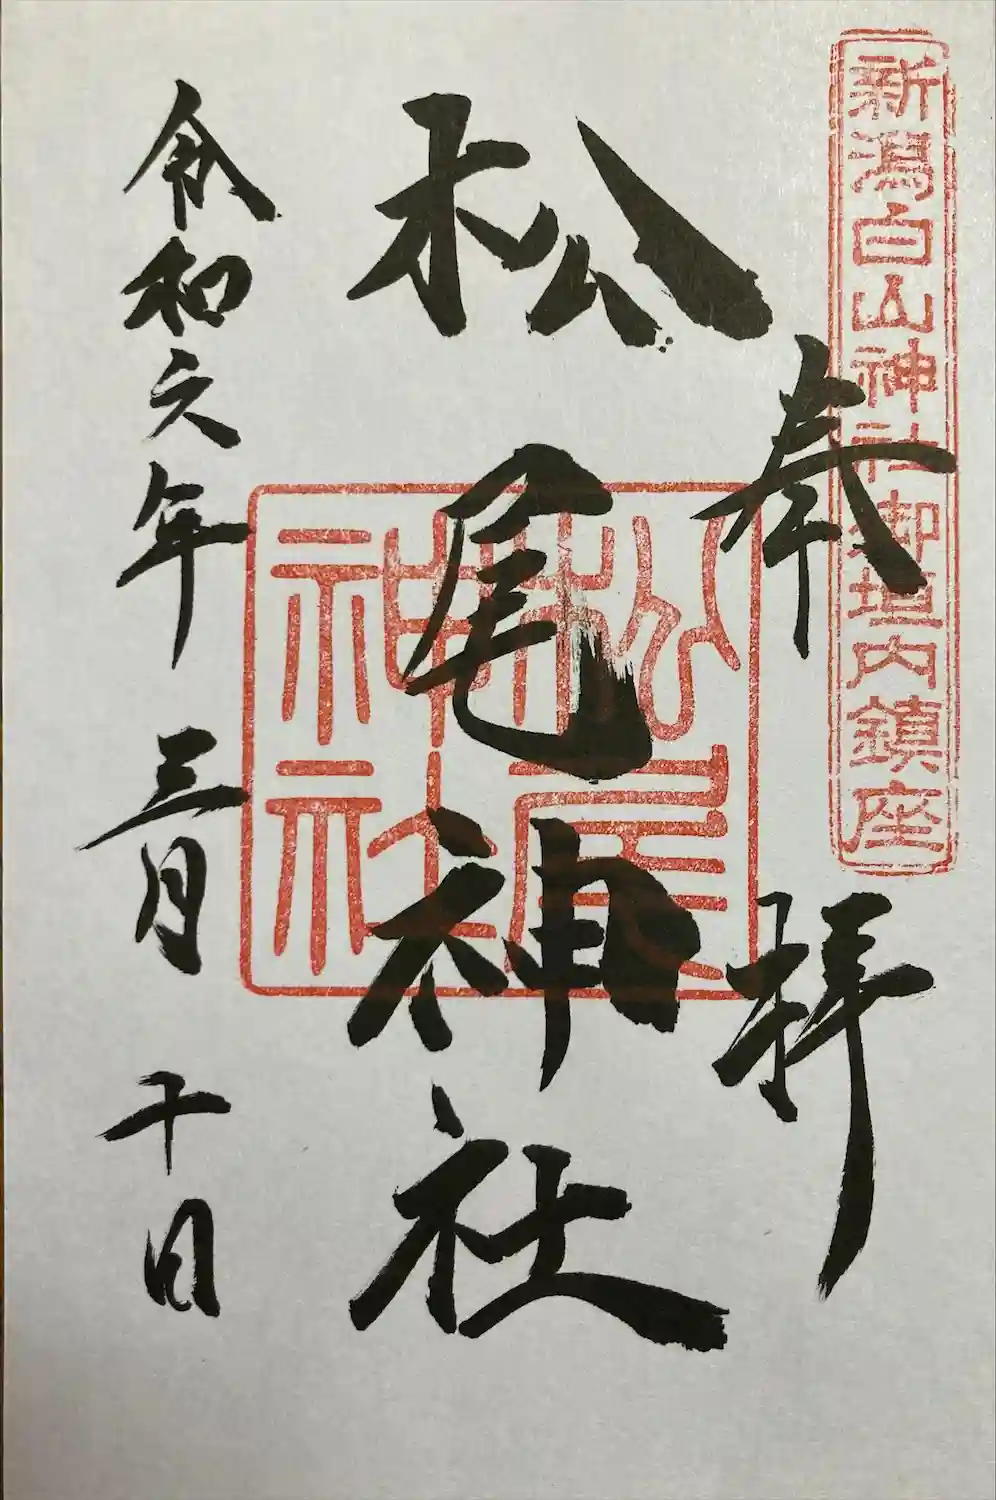 新潟白山神社御垣内鎮座
奉拝
松尾神社
松尾
神社
令和六年 三月 十日